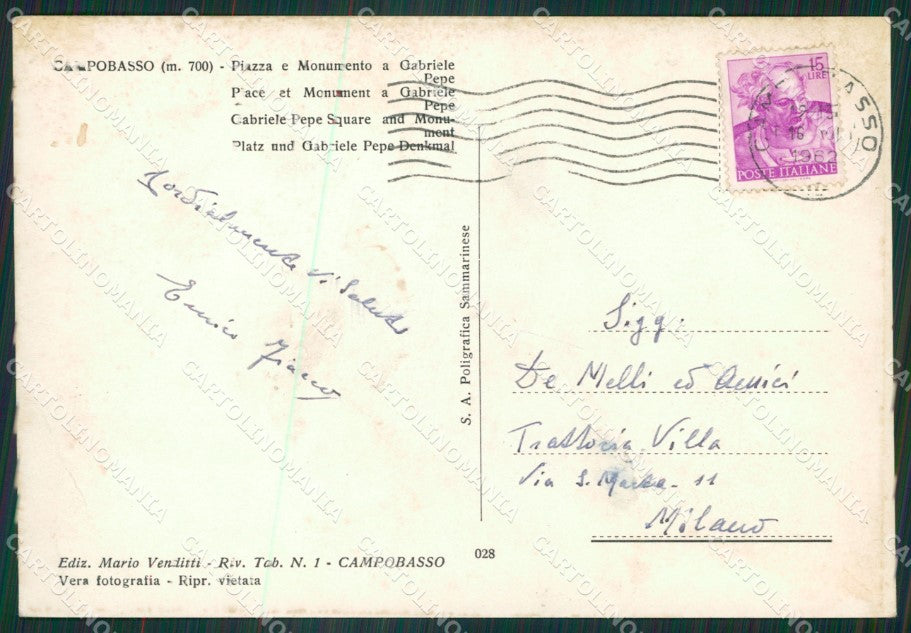 CAMPOBASSO (m. 700) - Piazza e Monumento a Gabriele
Pepe
Place et Monument a Gabriele
Pepe
Gabriele Pepe Square and Monu-
ment
Platz und Gabriele Pepe Denkmal
15
LIRE
POSTE ITALIANE
16
1962
Cordialmente Vi Saluto
Enrico
S. A. Poligrafica Sammarinese
Sigg.
De Melli ed Amici
Trattoria Villa
Via S. Marta - 11
Milano
Ediz. Mario Venditti - Riv. Tab. N. 1 - CAMPOBASSO
Vera fotografia - Ripr. vietata
028
CARTOLINOMANIA